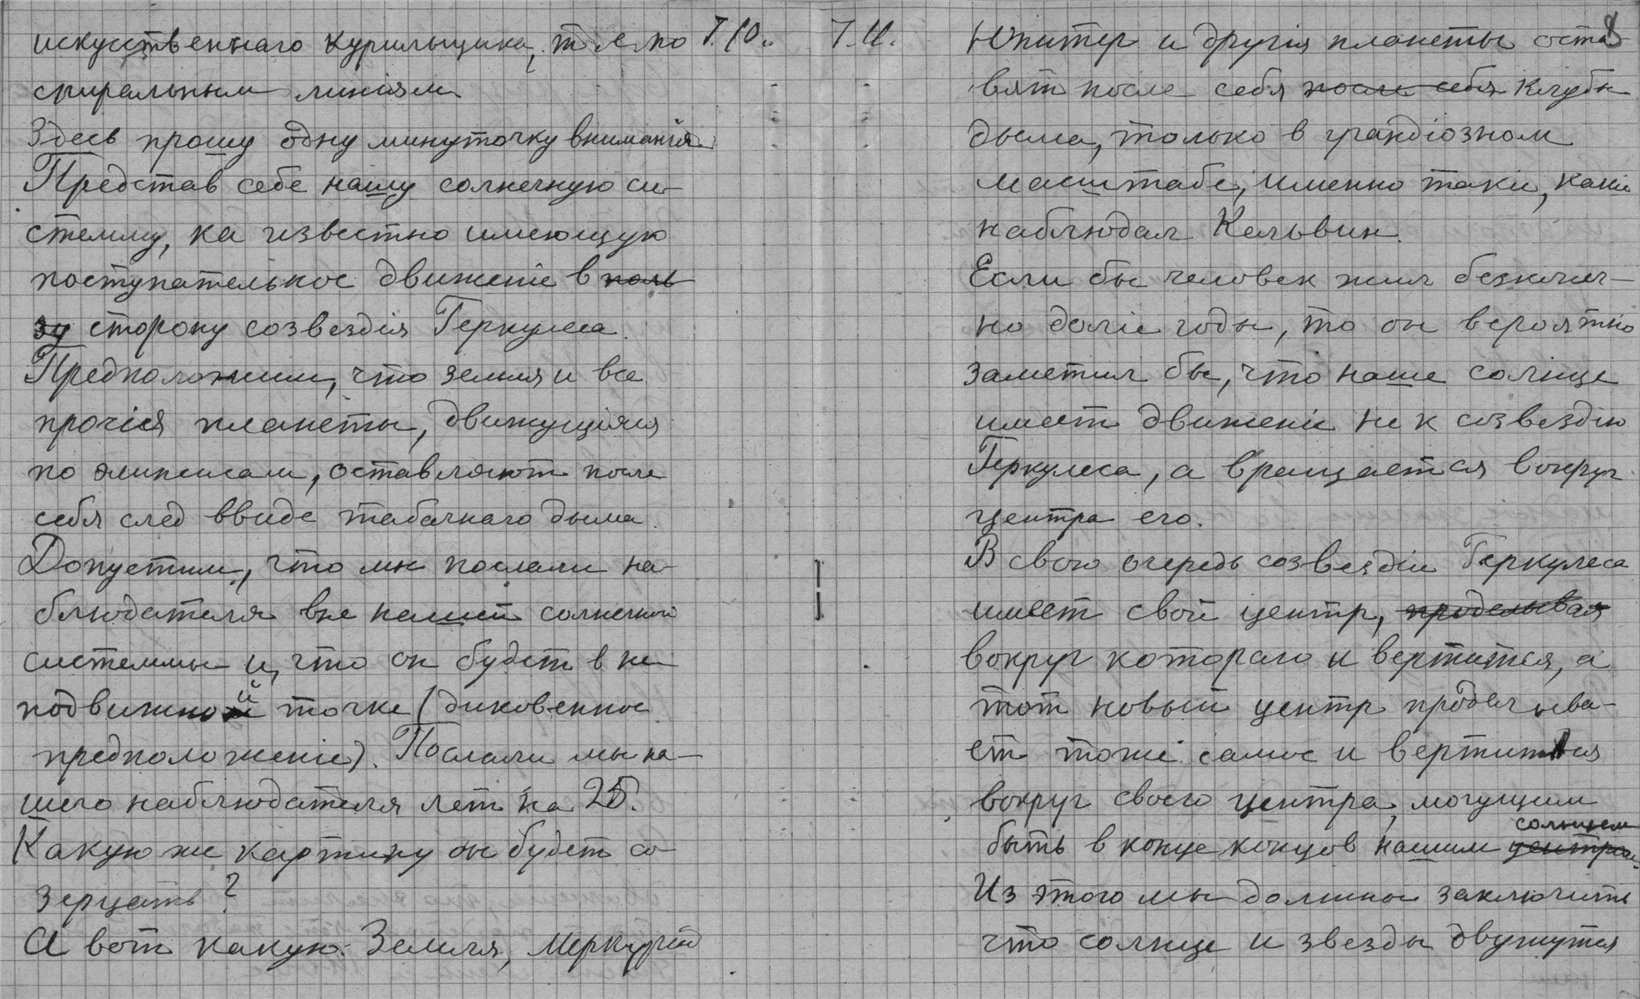 искусственнаго курильщика, т.е. по Т.10.
спиральным линіям
Здесь прошу одну минуточку вниманія
Представ себе нашу солнечную си-
стемму, ка известно имеющую
поступательное движеніе в поль
зу сторону созвездія Геркулеса.
Предположим, что земля и все
прочія планеты, движущіяся
по элипсисам, оставляют после
себя след ввиде табачнаго дыма.
Допустим, что мы послали на-
блюдателя вне нашей солнечной
системмы и, что он будет в не
подвижной точке (диковенное
предположеніе). Послали мы на-
шего наблюдателя лет на 25.
Какую же картину он будет со
зерцать?
А вот какую: Земля, Меркурій
Т.11. 8
Юпитер и другія планеты оста
вят после себя после себя клубы
дыма, только в грандіозном
масштабе, именно такие, какие
наблюдал Кельвин.
Если бы человек жил безконеч-
но долгіе годы, то он вероятно
заметил бы, что наше солнце
имеет движеніе не к созвездію
Геркулеса, а вращается вокруг
центра его.
В свою очередь созвездіе Геркулеса
имеет свой центр, проделывая
вокруг котораго и вертится, а
тот новый центр проделыва-
ет тоже самое и вертится
вокруг своего центра, могущим
быть в конце концов нашим центром солнцем
Из этого мы должны заключить
что солнце и звезды двужутся